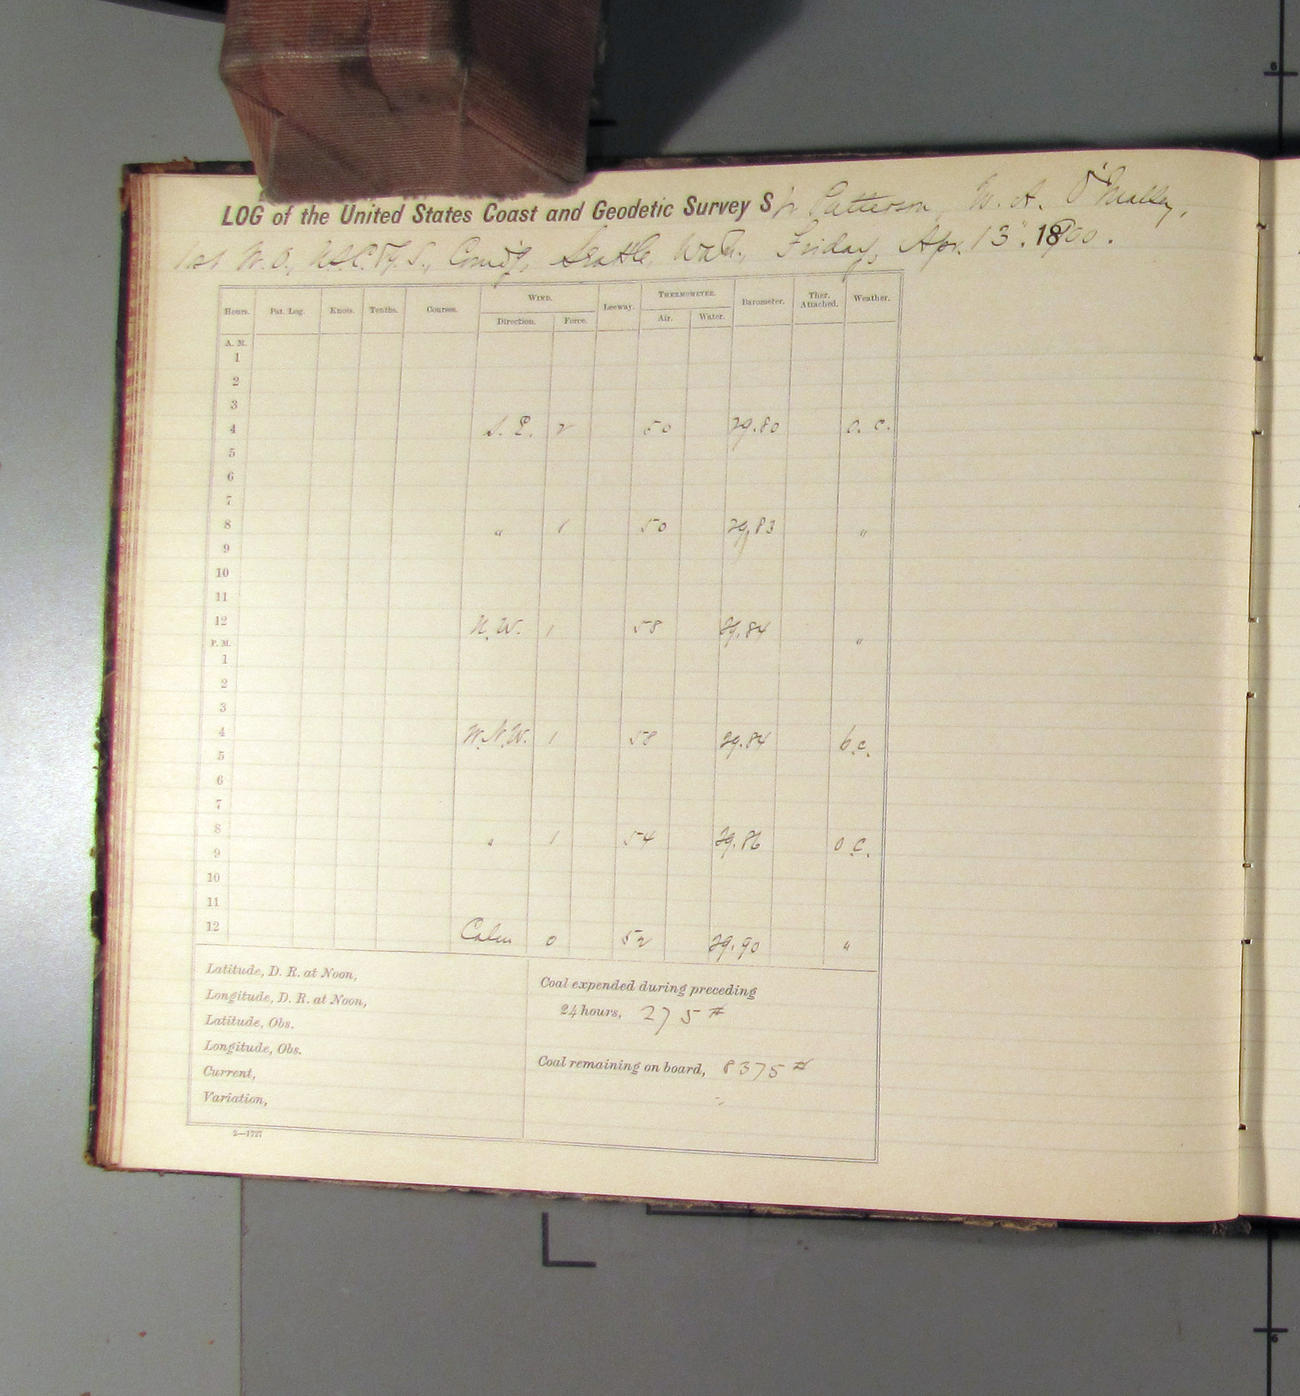 LOG of the United States Coast and Geodetic Survey S'r Patterson, W. A. O'Malley,
1st W.O., U.S.C.&G.S., Com'd'g, Seattle, Wash., Friday, Apr. 13". 1900.
Hours. Pat. Log. Knots. Tenths. Courses. WIND. Leeway. THERMOMETER. Barometer. Ther. Attached. Weather.
Direction. Force. Air. Water.
A. M.
1
2
3
4 S. E. 2 50 29.80 o. c.
5
6
7
8 " 1 50 29.83 "
9
10
11
12 N.W. 1 58 29.84 "
P. M.
1
2
3
4 W.N.W. 1 58 29.84 b.c.
5
6
7
8 " 1 54 29.86 o c.
9
10
11
12 Calm 0 52 29.90 "
Latitude, D. R. at Noon,
Longitude, D. R. at Noon,
Latitude, Obs.
Longitude, Obs.
Current,
Variation,
Coal expended during preceding
24 hours, 275 #
Coal remaining on board, 8375 #
2—1727